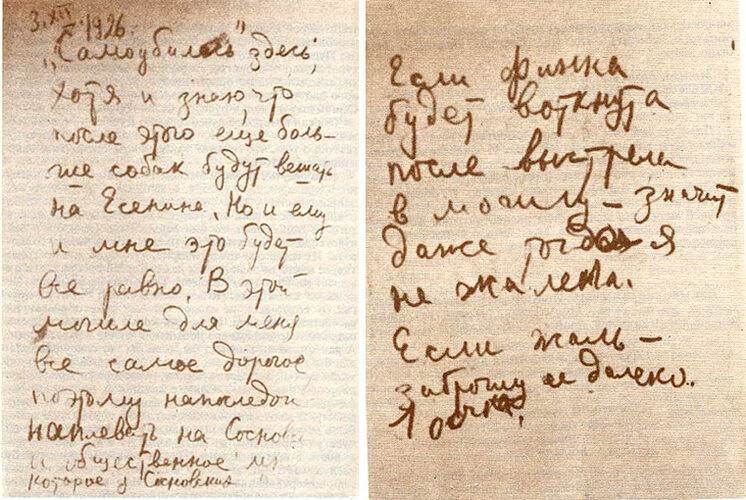 3.XII.1926.
„Самоубилась" здесь,
хотя и знаю, что
после этого еще боль–
ше собак будут вешать
на Есенина. Но и ему
и мне это будет
все равно. В этой
могиле для меня
все самое дорогое,
поэтому напоследок
наплевать на Сосновск
и общественное мн
которое у Сосновския
Если финка
будет воткнута
после выстрела
в могилу – значит
даже тогда я
не жалела.
Если жаль –
заброшу ее далеко.
1 осечка,